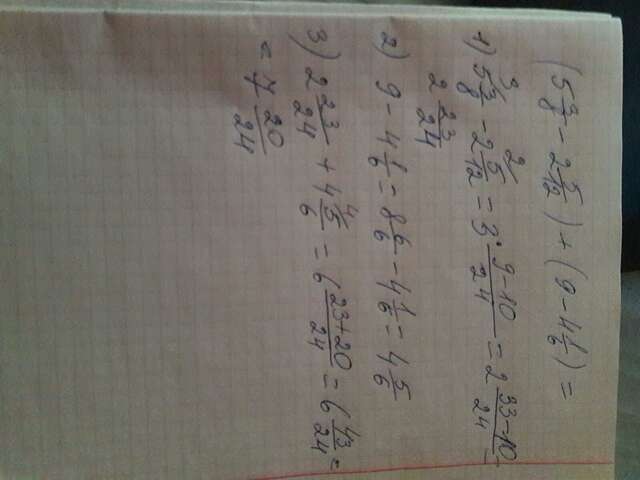 (5 3/8 - 2 5/12) + (9 - 4 1/6) =
1) 5 3/8 - 2 5/12 = 3 (9-10)/24 = 2 (33-10)/24
2 23/24
2) 9 - 4 1/6 = 8 6/6 - 4 1/6 = 4 5/6
3) 2 23/24 + 4 5/6 = 6 (23+20)/24 = 6 43/24 =
= 7 20/24